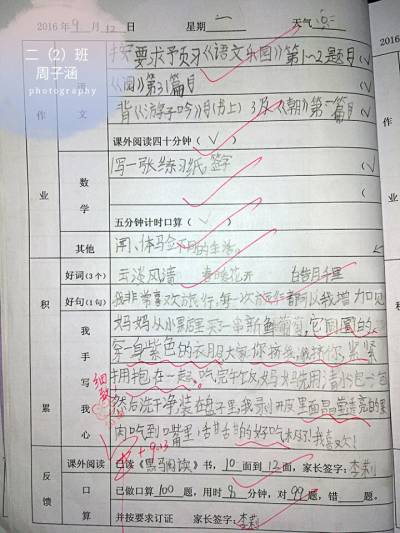 2016年9月12日 星期一 天气
二（2）班
周子涵
photography
按要求予页习《语文乐园》第1~2题目（√
语
《阅》第31篇目 （√
文
背《游子吟》（书上）
《朝》第 篇目（√
作
课外阅读四十分钟（√）
写一张练习纸，签字 （√
数
业
学
五分钟计时口算（√）
其他
体马佥不同的生活。
好词（3个） 云淡风清 春暖花开
积
好句（1句） 我非常喜欢旅行，每一次旅行都可以我增力口见
我
妈妈从水果店里买一串新鲜葡萄，它圆圆的
手
穿一身紫色的衣服，大家你挤我，我挤你，紧紧
写
拥抱在一起。吃完午饭，妈妈先用
细致
我
然后洗干净装在盘子里，我录开皮里面晶莹透亮的果
累
心
肉吃到嘴里，甜甜的好吃极了！我喜欢！
课外阅读 已读《黑马阅读》书，10面到12面，家长签字：李莉
反
口
已做口算100题，用时8分钟，对99题，错 题。
馈
算
并按要求订证 家长签字：李莉